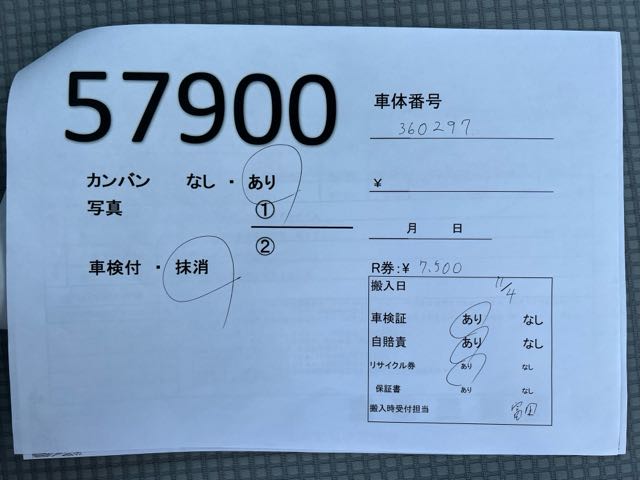 57900
車体番号
360297
カンバン なし ・ あり
写真 ①
②
¥
月 日
車検付 ・ 抹消
R券:¥ 7,500
搬入日 11/4
車検証 あり なし
自賠責 あり なし
リサイクル券 あり なし
保証書 あり なし
搬入時受付担当 富田